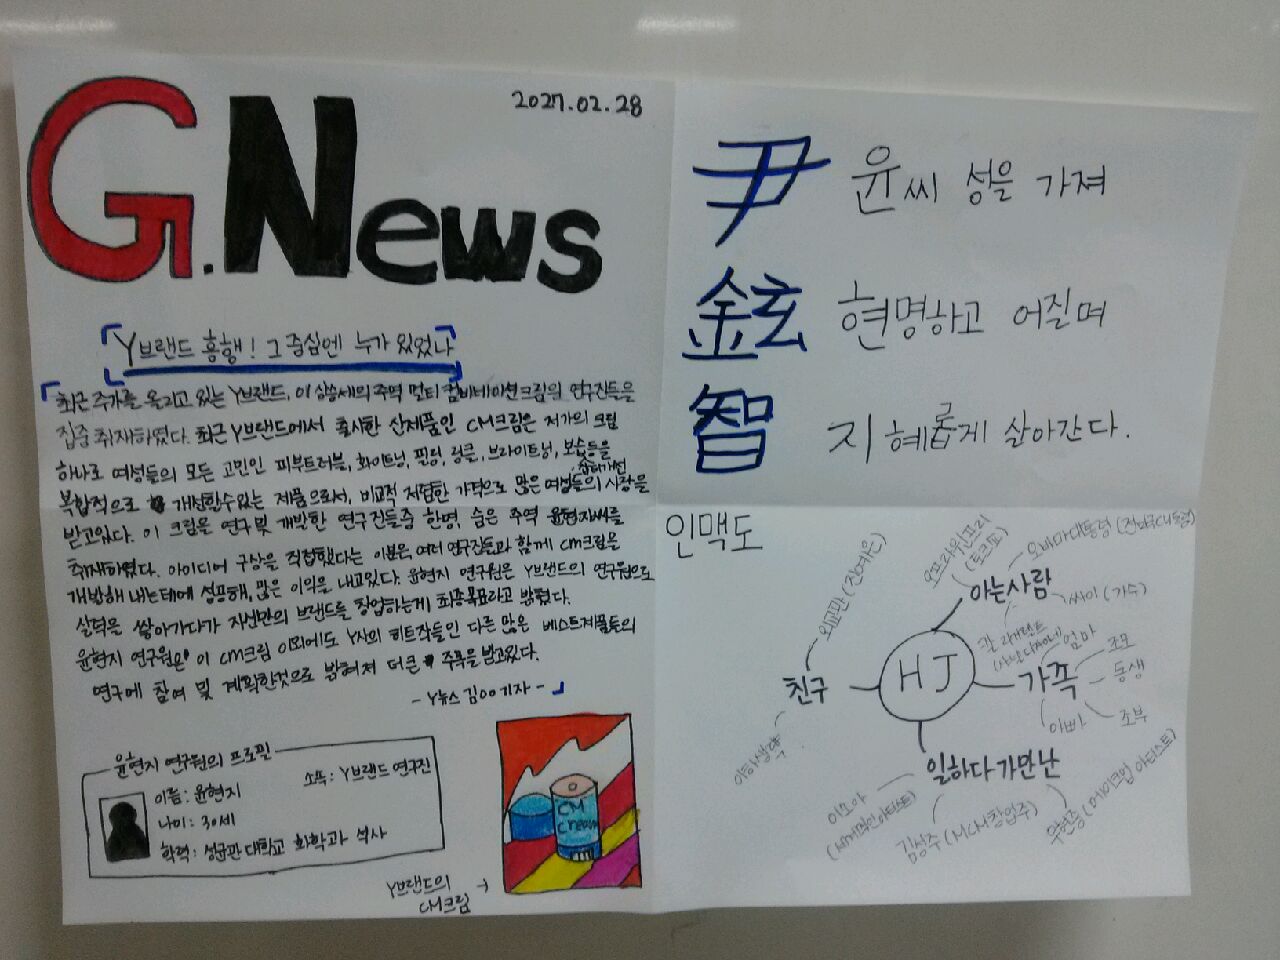 G.News
2027.02.28
Y브랜드 흥행! 그 중심엔 누가 있었나
최근 주가를 올리고 있는 Y브랜드, 이 상승세의 주역 멀티 컴비네이션크림의 연구진들을
집중 취재하였다. 최근 Y브랜드에서 출시한 신제품인 CM크림은 저가의 크림
하나로 여성들의 모든 고민인 피부트러블, 화이트닝, 필링, 링클, 브라이트닝, 보습등을
복합적으로 개선할수있는 제품으로서, 비교적 저렴한 가격으로 많은 여성들의 사랑을
받고있다. 이 크림을 연구 및 개발한 연구진들중 한명, 숨은 주역 윤현지씨를
취재하였다. 아이디어 구상을 직접했다는 이분은, 여러 연구진들과 함께 CM크림을
개발해 내는데에 성공해, 많은 이익을 내고있다. 윤현지 연구원은 Y브랜드의 연구원으로
실력을 쌓아가다가 자신만의 브랜드를 창업하는게 최종목표라고 밝혔다.
윤현지 연구원은 이 CM크림 이외에도 Y사의 히트작들인 다른 많은 베스트제품들의
연구에 참여 및 계획한것으로 밝혀져 더큰 주목을 받고있다.
- Y뉴스 김OO기자 -
윤현지 연구원의 프로필
이름 : 윤현지
소속 : Y브랜드 연구진
나이 : 30세
학력 : 성균관 대학교 화학과 석사
CM
Cream
Y브랜드의
CM크림
尹 윤씨 성을 가져
鉉 현명하고 어질며
智 지혜롭게 살아간다.
인맥도
HJ
아는사람
오프라윈프리
(토크쇼)
오바마대통령
싸이 (가수)
칼 라거펠트
가족
엄마
조모
동생
조부
아빠
친구
외교관 (진예은)
이하생략
일하다가만난
(세계적인아티스트)
김성주 (MCM창업주)
우현증 (메이크업 아티스트)